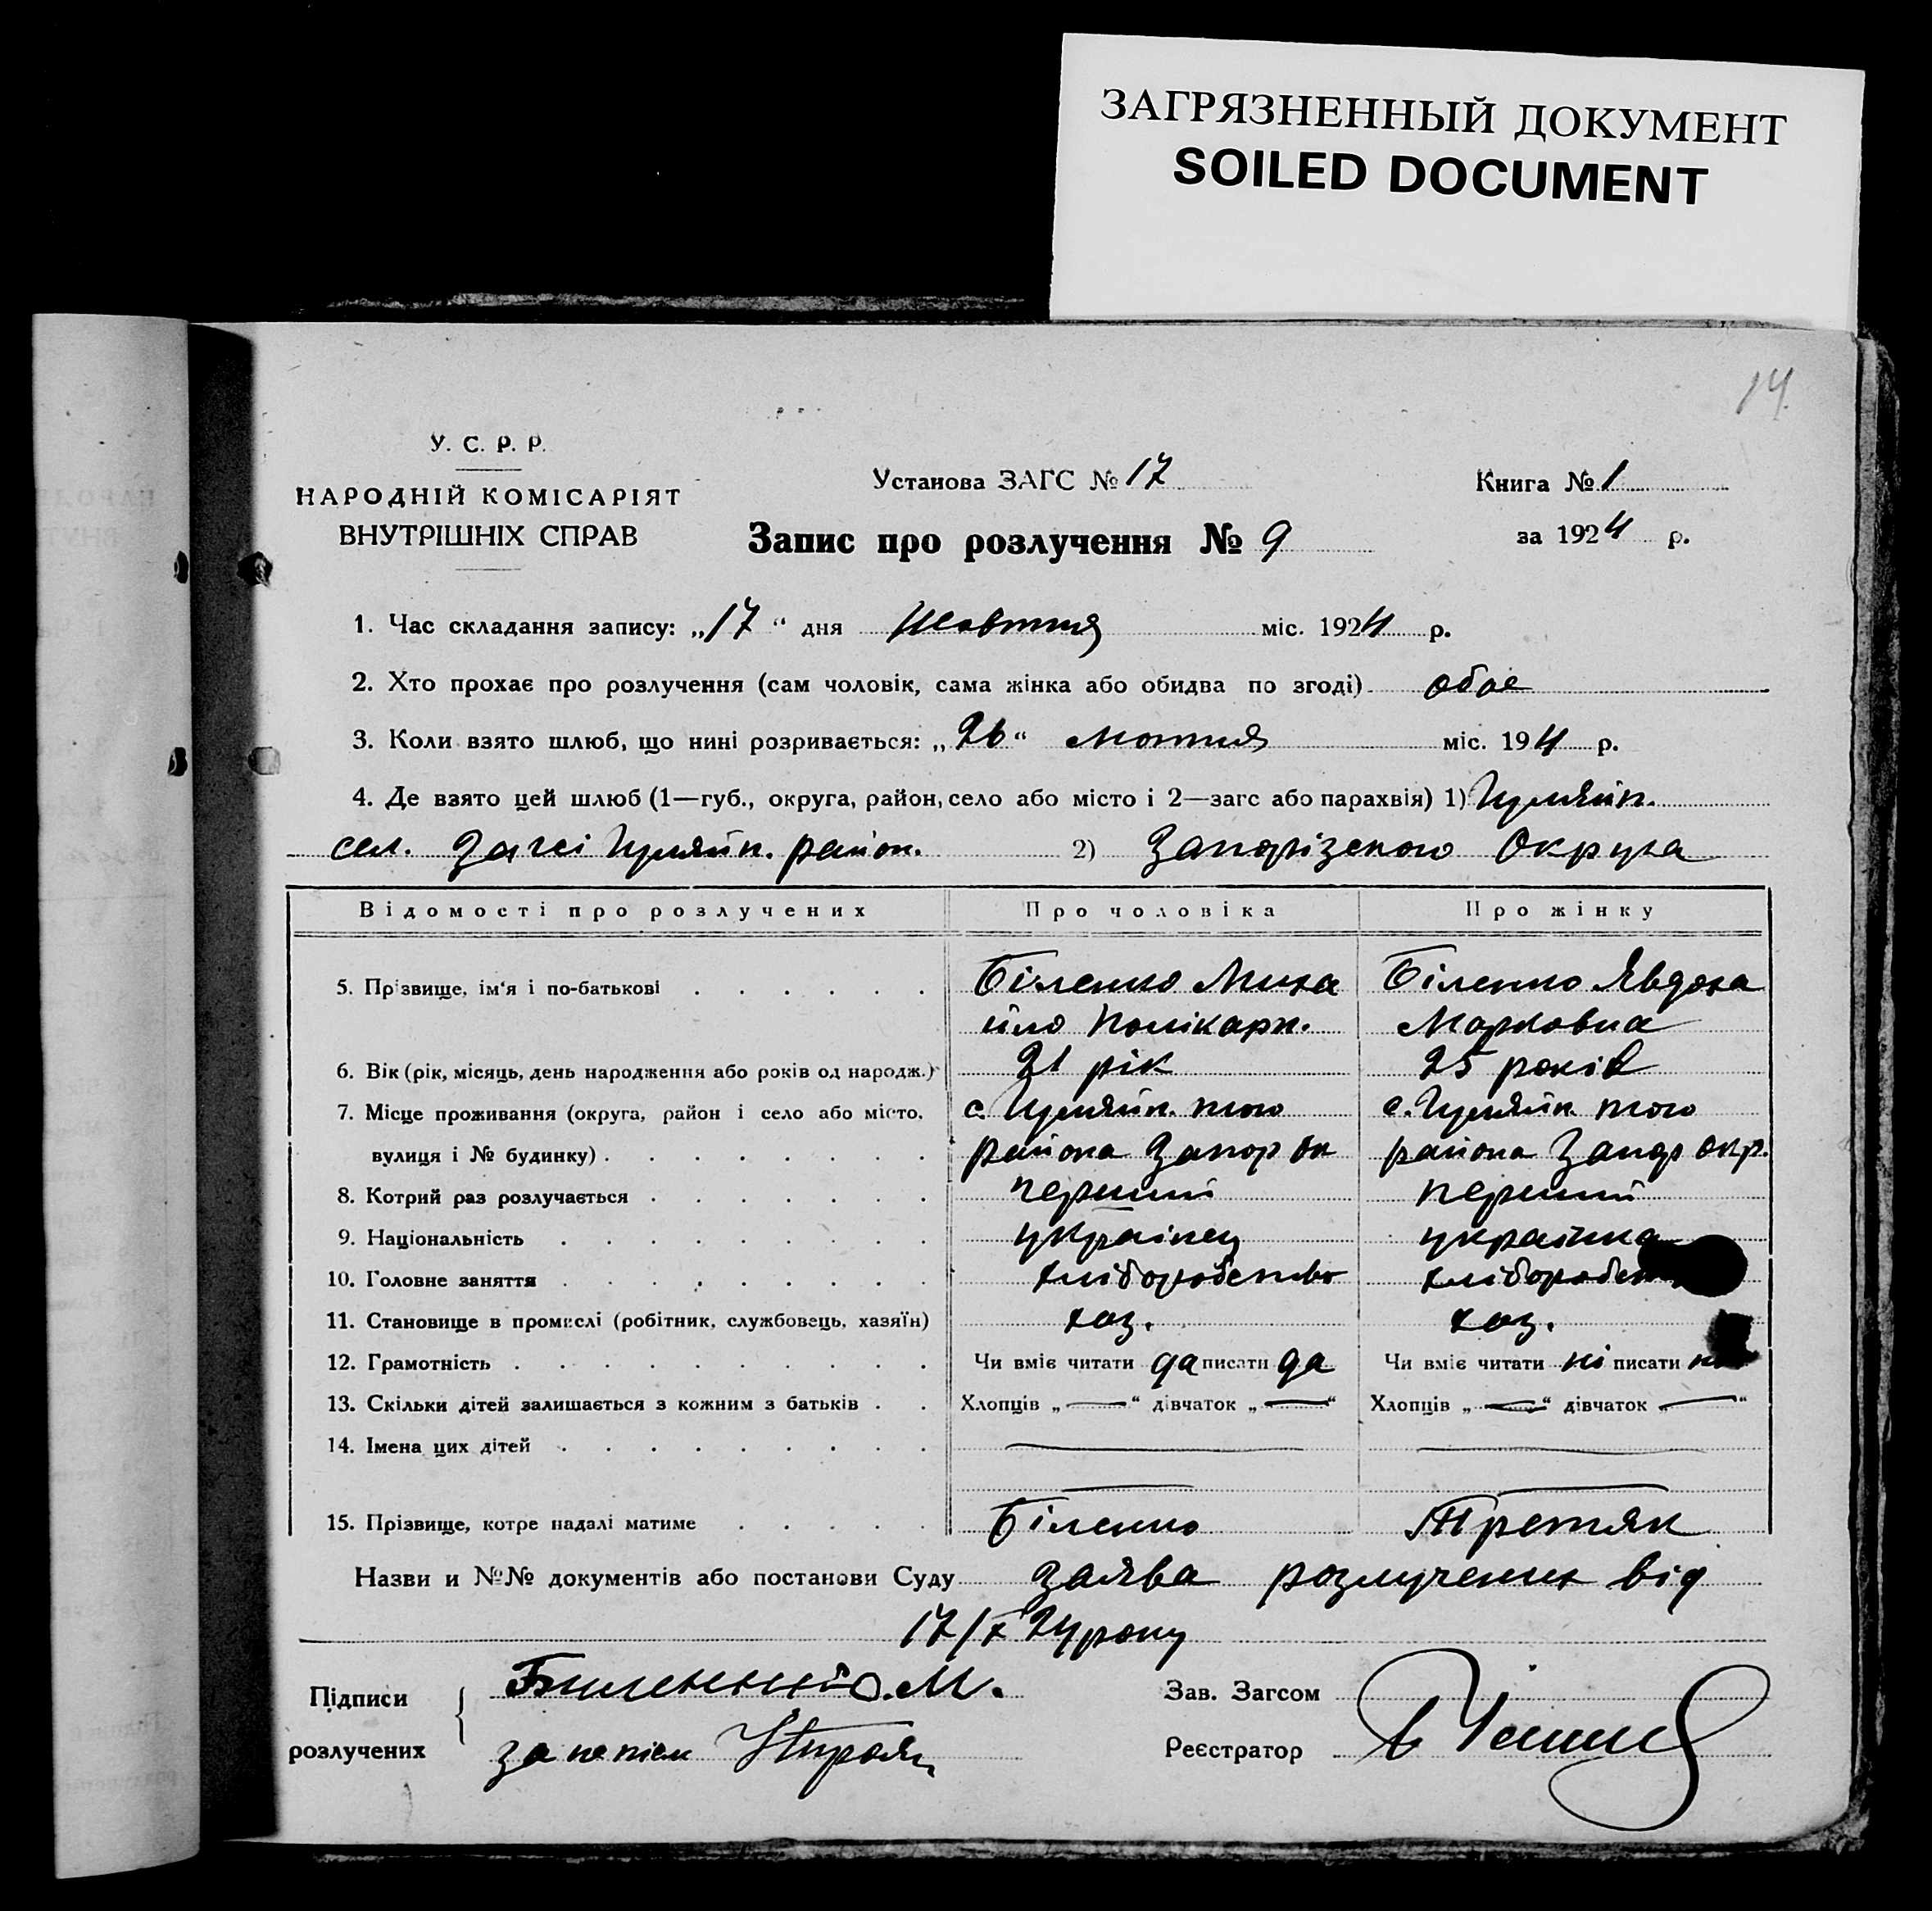 ЗАГРЯЗНЕННЫЙ ДОКУМЕНТ
SOILED DOCUMENT
14.
У. С. Р. Р.
НАРОДНІЙ КОМІСАРІЯТ
ВНУТРІШНІХ СПРАВ
Установа ЗАГС № 17
Книга № 1
Запис про розлучення № 9
за 1924 р.
1. Час складання запису: „17“ дня Жовтня міс. 1924 р.
2. Хто прохає про розлучення (сам чоловік, сама жінка або обидва по згоді) обое
3. Коли взято шлюб, що нині розривається: „26“ лютня міс. 194 р.
4. Де взято цей шлюб (1—губ., округа, район, село або місто і 2—загс або парахвія) 1) Гуляйп.
сел. Загсі Гуляйп. район. 2) Запорізького Округа
Відомості про розлучених Про чоловіка Про жінку
5. Прізвище, ім'я і по-батькові Біленко Миха Біленко Явдоха
йло Полікарп. Марковна
6. Вік (рік, місяць, день народження або років од народж.) 21 рік 25 років
7. Місце проживання (округа, район і село або місто, с. Гуляйп. того с. Гуляйп. того
вулиця і № будинку) района Запор ок района Запор окр.
8. Котрий раз розлучається перший перший
9. Національність українец українка
10. Головне заняття хліборобство
11. Становище в промислі (робітник, службовець, хазяїн) хаз. хаз.
12. Грамотність Чи вміє читати да писати да Чи вміє читати ні писати
13. Скільки дітей залишається з кожним з батьків Хлопців „—“ дівчаток „—“ Хлопців „—“ дівчаток „—“
14. Імена цих дітей — —
15. Прізвище, котре надалі матиме Біленко Третяк
Назви и №№ документів або постанови Суду заява розлучених від
17/X 24 року
Підписи
розлучених
М.
за
Зав. Загсом
Реєстратор